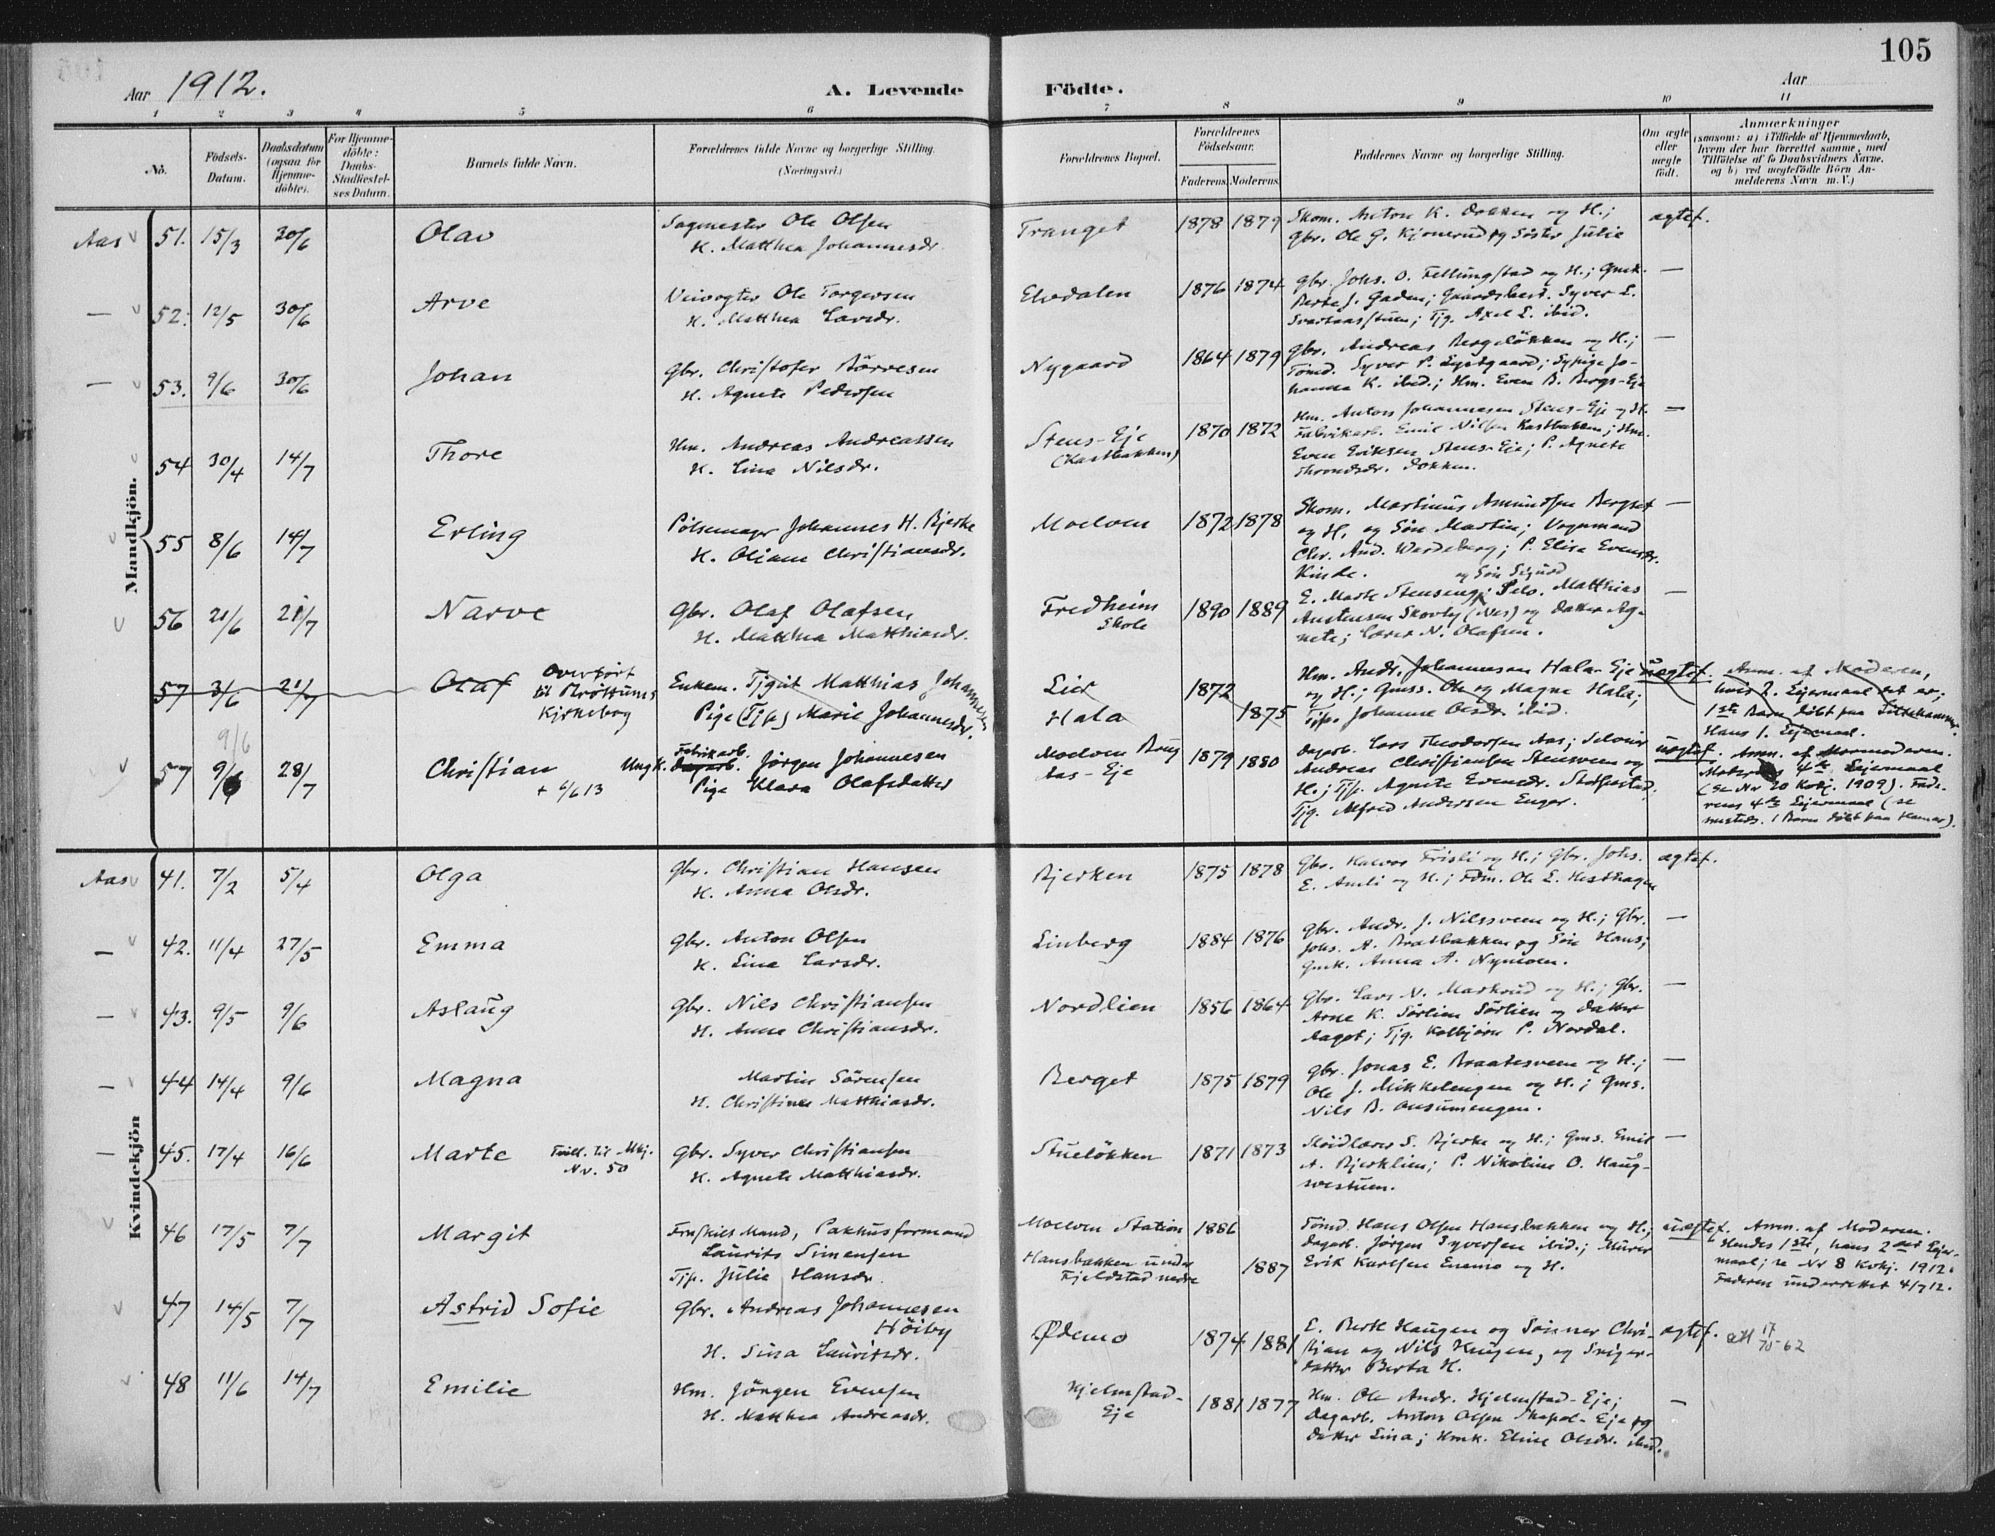 105
Aar 1912.
A. Levende Födte.
Aar
1 2 3 4 5 6 7 8 9 10 11
No.
Födsels-Datum.
Daabsdatum (ogsaa for Hjemme-döbte).
For Hjemme-döbte: Daabs-Stadfæstel-ses Datum.
Barnets fulde Navn.
Forældrenes fulde Navne og borgerlige Stilling.
(Næringsvei.)
Forældrenes Bopæl.
Forældrenes Födselsaar.
Faderens. Moderens.
Faddernes Navne og borgerlige Stilling.
Om ægte eller uægte födt.
Anmærkninger
(saasom: a) i Tilfælde af Hjemmedaab,
hvem der har forrettet samme, med
Tilföielse af to Daabsvidners Navne,
og b) ved uægtefödte Börn An-
melderens Navn m. V.)
Mandkjön.
Aas 51. 15/3 30/6 Olav
Sagmester Ole Olsen
H. Matthea Johannesdr.
Tranget 1878 1879
Skom. Anton K. Dokken og H.;
Gbr. Ole G. Kjønerud og Søster Julie
ægtef.
— 52. 12/5 30/6 Arve
Veivogter Ole Torgersen
H. Matthea Larsdr.
Elvdalen 1876 1874
Gbr. Johs. O. Fellungstad og H.; Gmk.
Berte J. Gaden; Gaardsbest. Syver L.
Svartaasstuen; Tjg. Axel L. ibid.
—
— 53. 9/6 30/6 Johan
Gbr. Christofer Börresen
H. Agnete Pedersen
Nygaard 1864 1879
Gbr. Andreas Bergeløkken og H.;
Tømd. Syver P. Lystgaard; Sypige Jo-
hanna K. ibid.; Hm. Even B. Bergs-Eje
—
54 30/4 14/7 Thore
Hm. Andreas Andreassen
H. Lina Nilsdr.
Stens-Eje
(Kastbakken)
1870 1872
Hm. Anton Johannesen Stens-Eje og H.
Fabrikarb. Emil Nilsen Kastbakken; Hm.
Even Eriksen Stens-Eje; P. Agnete
Throndsdr. Dokken.
—
55 8/6 14/7 Erling
Pölsemagr Johannes H. Bjerke
H. Oliane Christiansdr.
Moelven 1872 1878
Skom. Martinus Amundsen Berget
og H. og Søn Martin; Vognmand
Chr. And. Wardeberg; P. Elise Evensdr.
Kinde.
—
56 21/6 21/7 Narve
Gbr. Olaf Olafsen
H. Matthea Matthiasdr.
Fredheim
Skole
1890 1889
og Søn Sigurd
E. Marte Stenseng; Selv. Matthias
Austensen Skovly (Nes) og Datter Ag-
nete; Lærer N. Olafsen.
—
57 3/6 21/7 Olaf
Overført
til Brøttums
Kirkebog
Enkem. Tjgut Matthias Johannesen
Pige (Tjp.) Marie Johannesdr.
Lier
Hala
1872
1875
Hm. Andr. Johannesen Hala-Eje
og H.; Gmss. Ole og Magne Hala;
Tjp. Johanne Olsdr. ibid.
uægtef.
Anm. af Moderen,
hvis 2. Lejermaal det er;
1ste Barn døbt paa Lillehammer.
Hans 1. Lejermaal.
9/6
57 9/6 28/7 Christian
+ 6/6 13
Fabrikarb.
Ungk. Dagarb. Jørgen Johannesen
Pige Klara Olafsdatter
Moelven Brug
Aas-Eje
1879 1880
Dagarb. Lars Theodorsen Aas; Selveier
Andreas Christiansen Stensveen og
H.; Tjp. Agnete Evensdr. Stafsstad;
Tjg. Alfred Andersen Enger.
uægtef.
Anm. af Mormoderen.
Moderens 4de Lejermaal
(se Nr 20 Kvkj. 1909). Fade-
rens 4de Lejermaal (se
1 Barn døbt paa Hamar).
Kvindekjön
Aas 41. 7/2 5/4 Olga
Gbr. Christian Hansen
H. Anna Olsdr.
Bjerken 1875 1878
Gbr. Halvor Frisli og H.; Gbr. Johs.
E. Amli og H.; Fdm. Ole E. Hesthagen
ægtef.
— 42. 11/4 27/5 Emma
Gbr. Anton Olsen
H. Lina Larsdr.
Linberg 1884 1876
Gbr. Andr. J. Nilssveen og H.; Gbr.
Johs. A. Bratbakken og Søn Hans;
Gmk. Anna A. Nymoen.
—
— 43. 9/5 9/6 Aslaug
Gbr. Nils Christiansen
H. Anna Christiansdr.
Nordlien 1856 1864
Gbr. Lars N. Maskrud og H.; Gbr.
Arne K. Sørlien Sørlien og Datter
Dagot; Tjg. Kolbjørn P. Nordal.
—
— 44 14/4 9/6 Magna
Martin Sörensen
H. Christine Matthiasdr.
Berget 1875 1879
Gbr. Jonas E. Braatesveen og H.;
Ole J. Mikkelengen og H.; Gms.
Nils B. Onsumengen.
—
— 45. 17/4 16/6 Marte
Tvill. til Mkj.
Nr. 50
Gbr. Syver Christiansen
H. Agnete Matthiasdr.
Stueløkken 1871 1873
Sløidlærer S. Bjerke og H.; Gms. Emil
A. Bjerklien; P. Nikoline O. Haug-
svestuen.
—
46 17/5 7/7 Margit
Fraskilt Mand, Pakhusformand
Laurits Simensen
Tjp. Julie Hansdr.
Moelven Station
Hansbakken under
Fjeldstad nedre
1886
1887
Tømd. Hans Olsen Hansbakken og H.;
Dagarb. Jørgen Syversen ibid.; Murer
Erik Karlsen Enemo og H.
uægtef.
Anm. af Moderen.
Hendes 1ste, hans 2det Lejer-
maal; se Nr 8 Kvkj. 1912.
Faderen underrettet 4/7 12.
47 14/5 7/7 Astrid Sofie
Gbr. Andreas Johannesen
Höiby
H. Lina Lauritsdr.
Ødemo 1874 1881
E. Berte Haugen og Sønner Chri-
stian og Nils Haugen, og Sviger-
datter Berta H.
ægtef.
att 17/10-62
48 11/6 14/7 Emilie
Hm. Jörgen Evensen
H. Matthea Andreasdr.
Hjelmstad-
Eje
1881 1877
Hm. Ole Andr. Hjelmstad-Eje;
Dagarb. Anton Olsen Skapal-Eje og
Datter Lina; Hmk. Eline Olsdr. ibid.
—